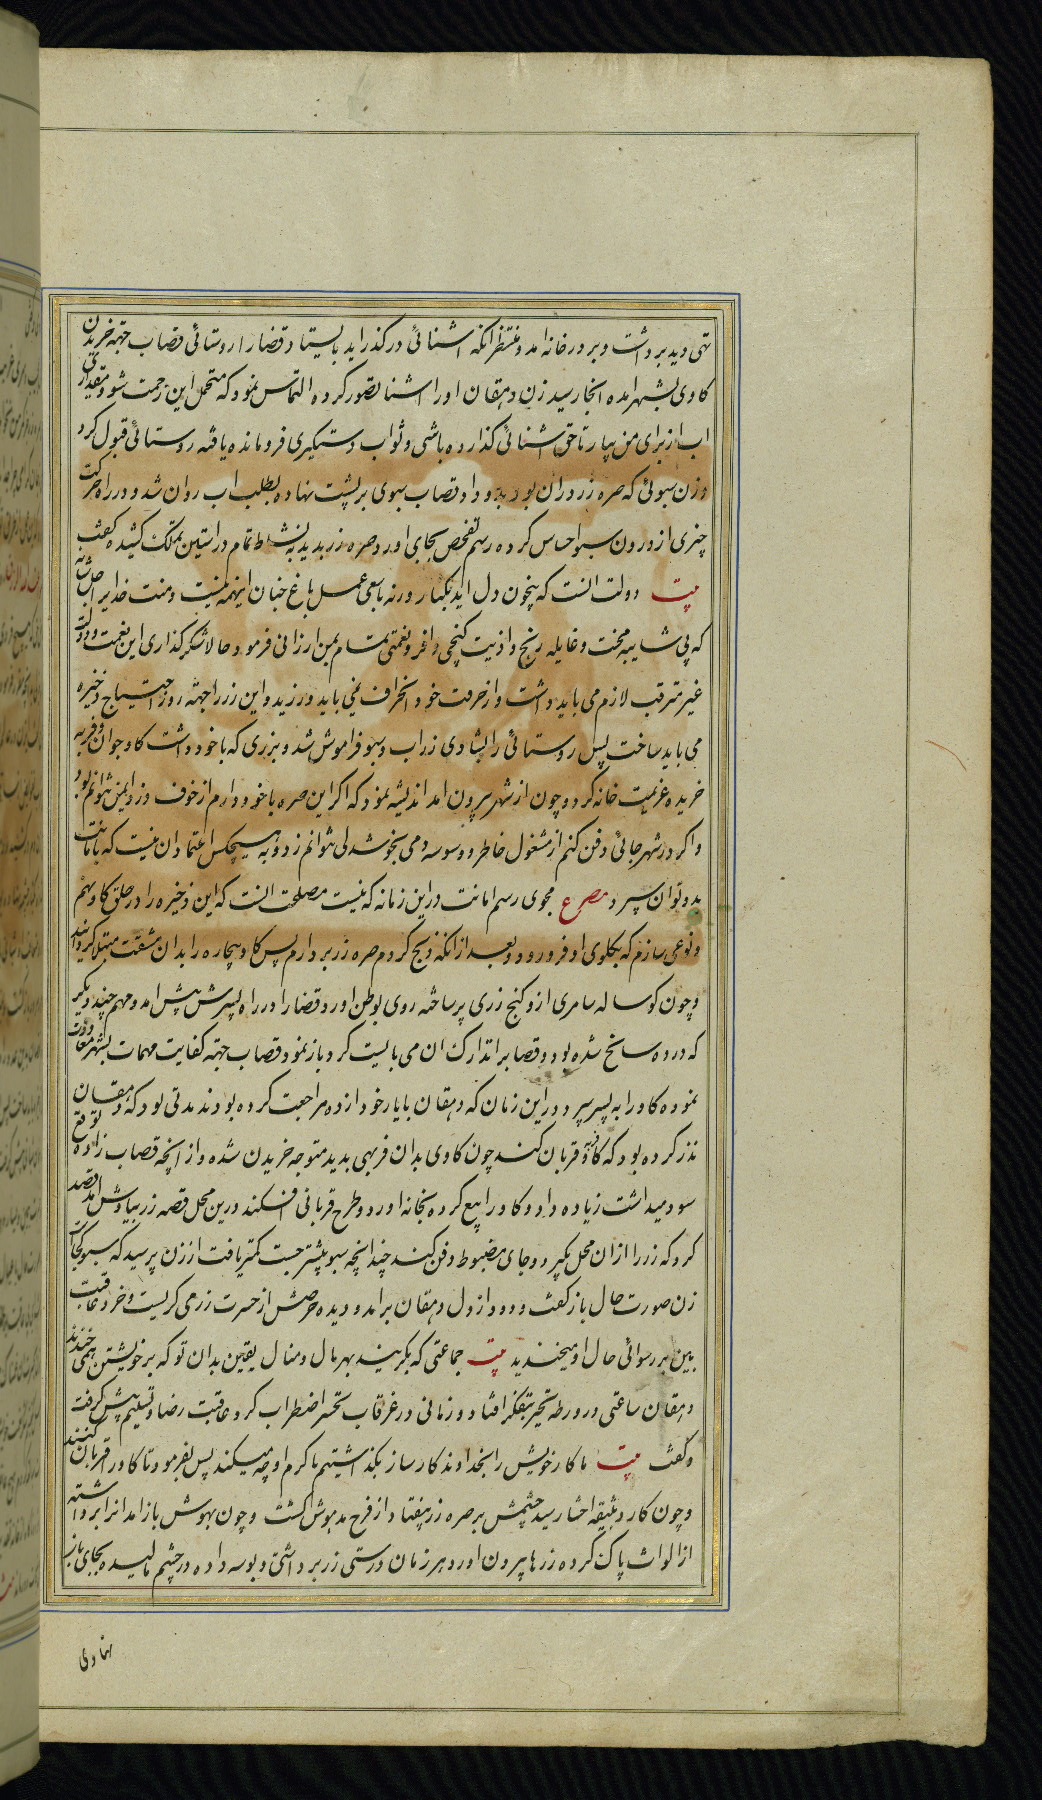 تهی دید برداشت و بر در خانه امد و منتظر انکه اشنائی در کذر اید بایستاد قضارا روستائی قصاب جهة خریدن
کاوی بشهر امده انجا رسید زن دهقان او را اشنا تصور کرده التماس نمود که متحمل این زحمت شو و مقداری
اب از برای من بیار تا حق اشنائی کذارده باشی و ثواب دستکیری فرومانده یافته روستائی قبول کرد
و زن سبوئی که صره زر دران بود بدو داد قصاب سبوی بر پشت نهاده بطلب اب روان شد و در راه حرکت
چیزی از درون سبو احساس کرده رسم تفحص بجای اورد صره زر بدید به نشاط تمام در استین تملک کشیده کفت
بیت دولت انست که بیخون دل اید بکنار ورنه با سعی عمل باغ جنان اینهمه نیست و منت خدایرا جل شانه
که بی شایبه محنت و غایله رنج و اذیت کنجی وافر و نعمتی تمام بمن ارزانی فرمود حالا شکر کذاری این نعمت و دولت
غیر مترقب لازم می باید داشت و از حرفت خود انحراف نمی باید ورزید و این زر را جهة روز احتیاج ذخیره
می باید ساخت پس روستائی را بشادی زر اب و سبو فراموش شد و بزری که با خود داشت کاو جوان و فربه
خریده عزیمت خانه کرد و چون از شهر بیرون امد اندیشه نمود که اکر این صره با خود دارم از خوف دزد ایمن نتوانم بود
و اکر در شهر جائی دفن کنم از مشغول خاطر و وسوسه دمی بخوشدلی نتوانم زد و به هیچکس اعتماد ان نیست که بامانت
بدو توان سپرد مصرع مجوی رسم امانت در این زمانه که نیست مصلحت انست که این ذخیره را در حلق کاو نهم
و نوعی سازم که بکلوی او فرو رود و بعد از انکه ذبح کردم صره زر بردارم پس کاو بیچاره را بدان مشقت مبتلا کردانید
و چون کوساله سامری از و کنج زری پر ساخته روی بوطن اورد قضارا در راه پسرش پیش امد و مهم چند دیکر
که در ده سانح شده بود و قصابرا تدارک ان می بایست کرد باز نمود قصاب جهة کفایت مهمات بشهر معاودت
نموده کاو را به پسر سپرد و در این زمان که دهقان با یار خود از ده مراجعت کرده بودند مدتی بود که دهقان
نذر کرده بود که کاوی قربان کند چون کاوی بدان فربهی بدید متوجه خریدن شده و از انچه قصاب زاده توقع
سود میداشت زیاده داد و کاو را بیع کرده بخانه اورد و طرح قربانی افکند درین محل قصه زر بیادش امد قصد
کرد که زر را ازان محل بکیرد و جای مضبوط دفن کند چندانچه سبو بیشتر جست کمتر یافت از زن پرسید که سبو کجاست
زن صورت حال باز کفت و دود از دل دهقان برامد و دیده حرصش از حسرت زر می کریست و خرد عاقبت
بین بر رسوائی حال او میخندید بیت جماعتی که بکریند بهر مال و منال یقین بدان تو که بر خویشتن همی خندند
دهقان ساعتی در ورطه تحیر بتفکر افتاد و زمانی در غرقاب تحسر اضطراب کرد عاقبت رضا و تسلیم پیش کرفت
و کفت بیت ما کار خویش را بخداوند کارساز بکذاشتیم تا کرم او چه میکند پس بفرمود تا کاو را قربان کنند
و چون کار بشقه احشا رسید چشمش بر صره زر بیفتاد از فرح مدهوش کشت و چون بهوش باز امد انرا برداشته
از الواث پاک کرده زرها بیرون اورد و هر زمان درستی زر برداشتی و بوسه داده در چشم مالیده بجای باز
نهادی